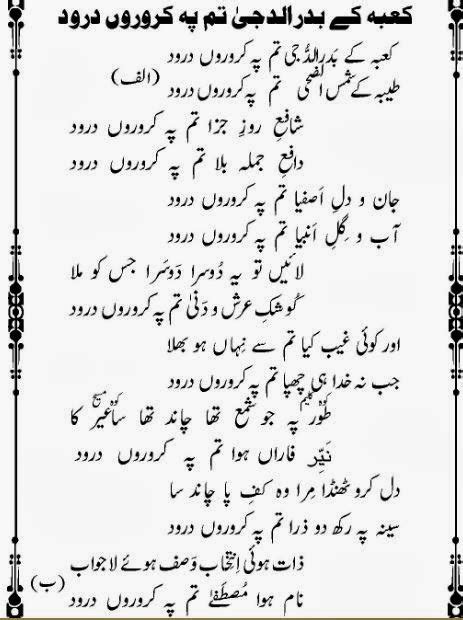 کعبہ کے بدر الدجیٰ تم پہ کروروں درود
کعبہ کے بَدرُالدُّجی تم پہ کروروں درود
طیبہ کے شمس الضُّحی تم پہ کروروں درود (الف)
شافعِ روزِ جزا تم پہ کروروں درود
دافعِ جملہ بلا تم پہ کروروں درود
جان و دلِ اَصفیا تم پہ کروروں درود
آب و گِلِ اَنبیا تم پہ کروروں درود
لائیں تو یہ دُوسرا دَوسَرا جس کو ملا
کُوشکِ عرش و دَنیٰ تم پہ کروروں درود
اور کوئی غیب کیا تم سے نِہاں ہو بھلا
جب نہ خدا ہی چھپا تم پہ کروروں درود
طُور پہ جو شمع تھا چاند تھا ساعیر کا
نَیِّر فاراں ہوا تم پہ کروروں درود
دل کرو ٹھنڈا مِرا وہ کفِ پا چاند سا
سینہ پہ رکھ دو ذرا تم پہ کروروں درود
ذات ہوئی اِنتخاب وَصف ہوئے لاجواب
نام ہوا مُصطَفٰے تم پہ کروروں درود (ب)